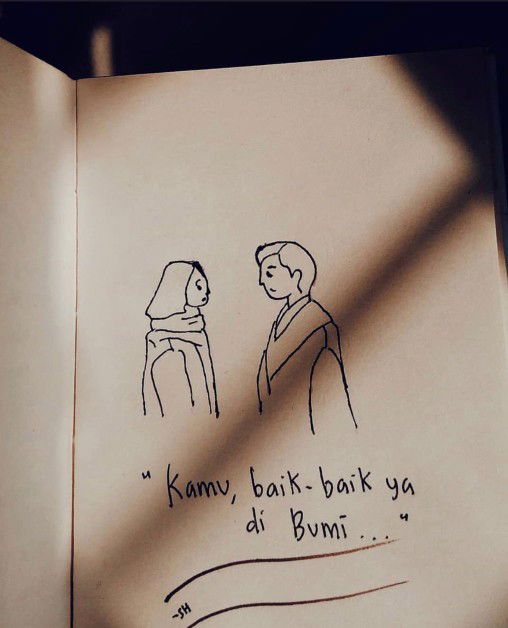 " Kamu, baik-baik ya
di Bumi... "
-SH